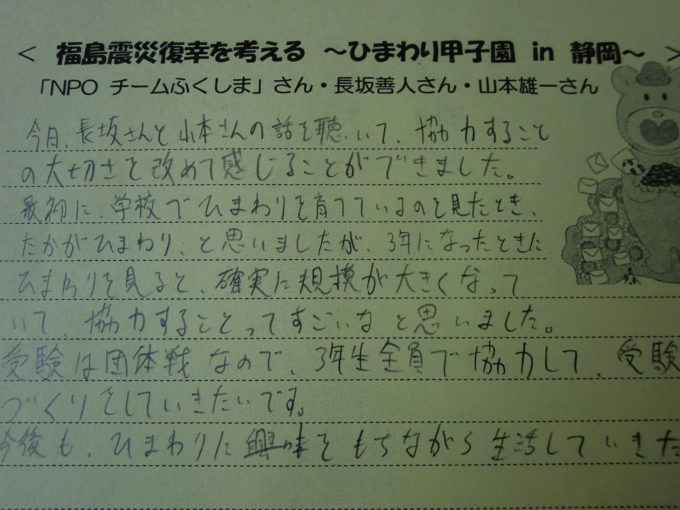 ＜ 福島震災復幸を考える ～ひまわり甲子園 in 静岡～ ＞
「NPO チームふくしま」さん・長坂善人さん・山本雄一さん
今日、長坂さんと山本さんの話を聴いて、協力すること
の大切さを改めて感じることができました。
最初に、学校でひまわりを育てているのを見たとき、
たかがひまわり、と思いましたが、3年になったときに
ひまわりを見ると、確実に規模が大きくなって
いて、協力することってすごいなと思いました。
受験は団体戦なので、3年生全員で協力して、受験
づくりをしていきたいです。
今後も、ひまわりに興味をもちながら生活していきた